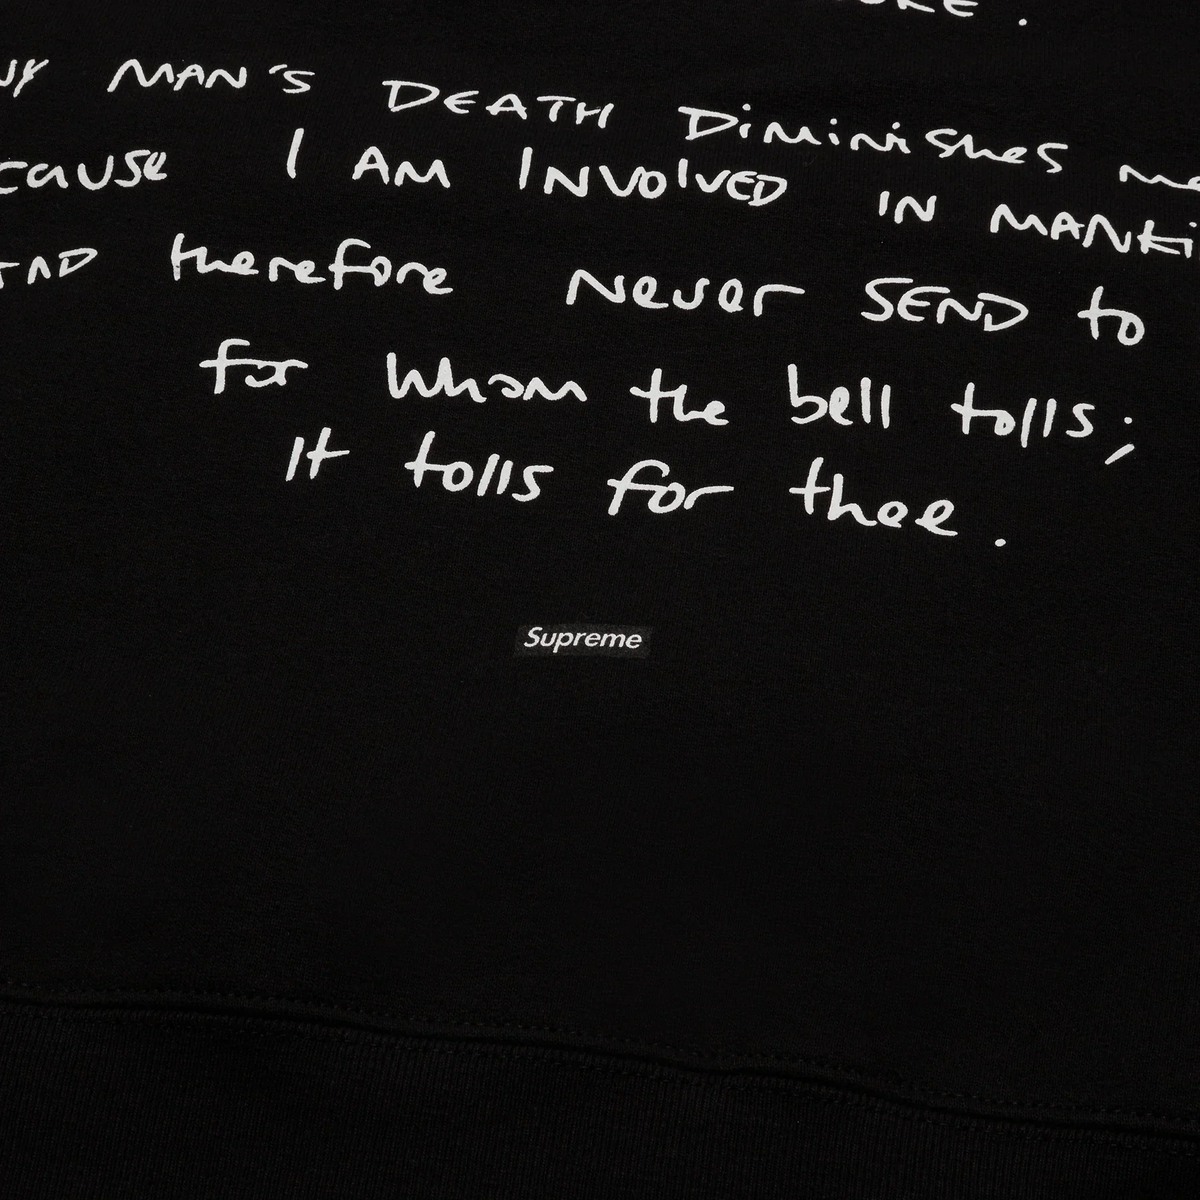 MAN'S DEATH DiminiShes me
cause I AM INVOlVED IN MANKi
AND therefore Never SEND to
for whom the bell tolls;
It tolls for thee.
Supreme